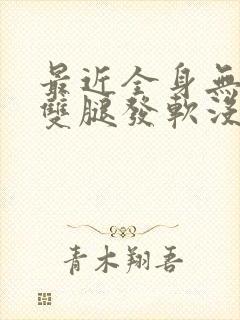 最近全身無
雙腿發軟沒
青木翔吾